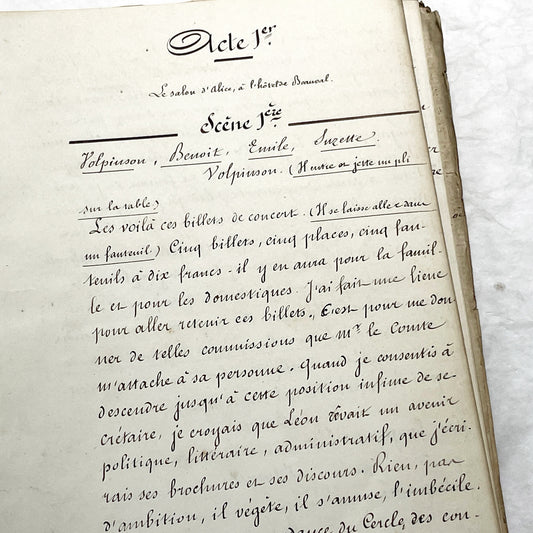 Acte 1er
Le salon d'Alice, à l'hôtel de Beauval.
Scène 1ère
Volpinson, Benoit, Emile, Suzette.
Volpinson. (Il entre et jette un pli
sur la table)
Les voilà ces billets de concert. (Il se laisse aller dans
un fauteuil.) Cinq billets, cinq places, cinq fau-
teuils à dix francs - il y en aura pour la famil-
le et pour les domestiques. J'ai fait une lieue
pour aller retenir ces billets. C'est pour me don
ner de telles commissions que mr. le Comte
m'attache à sa personne. Quand je consentis à
descendre jusqu'à cette position infime de se-
crétaire, je croyais que Léon rêvait un avenir
politique, littéraire, administratif, que j'écri-
rais ses brochures et ses discours. Rien, pas
d'ambition, il végète, il s'amuse, l'imbécile.
du Cercle, des con-